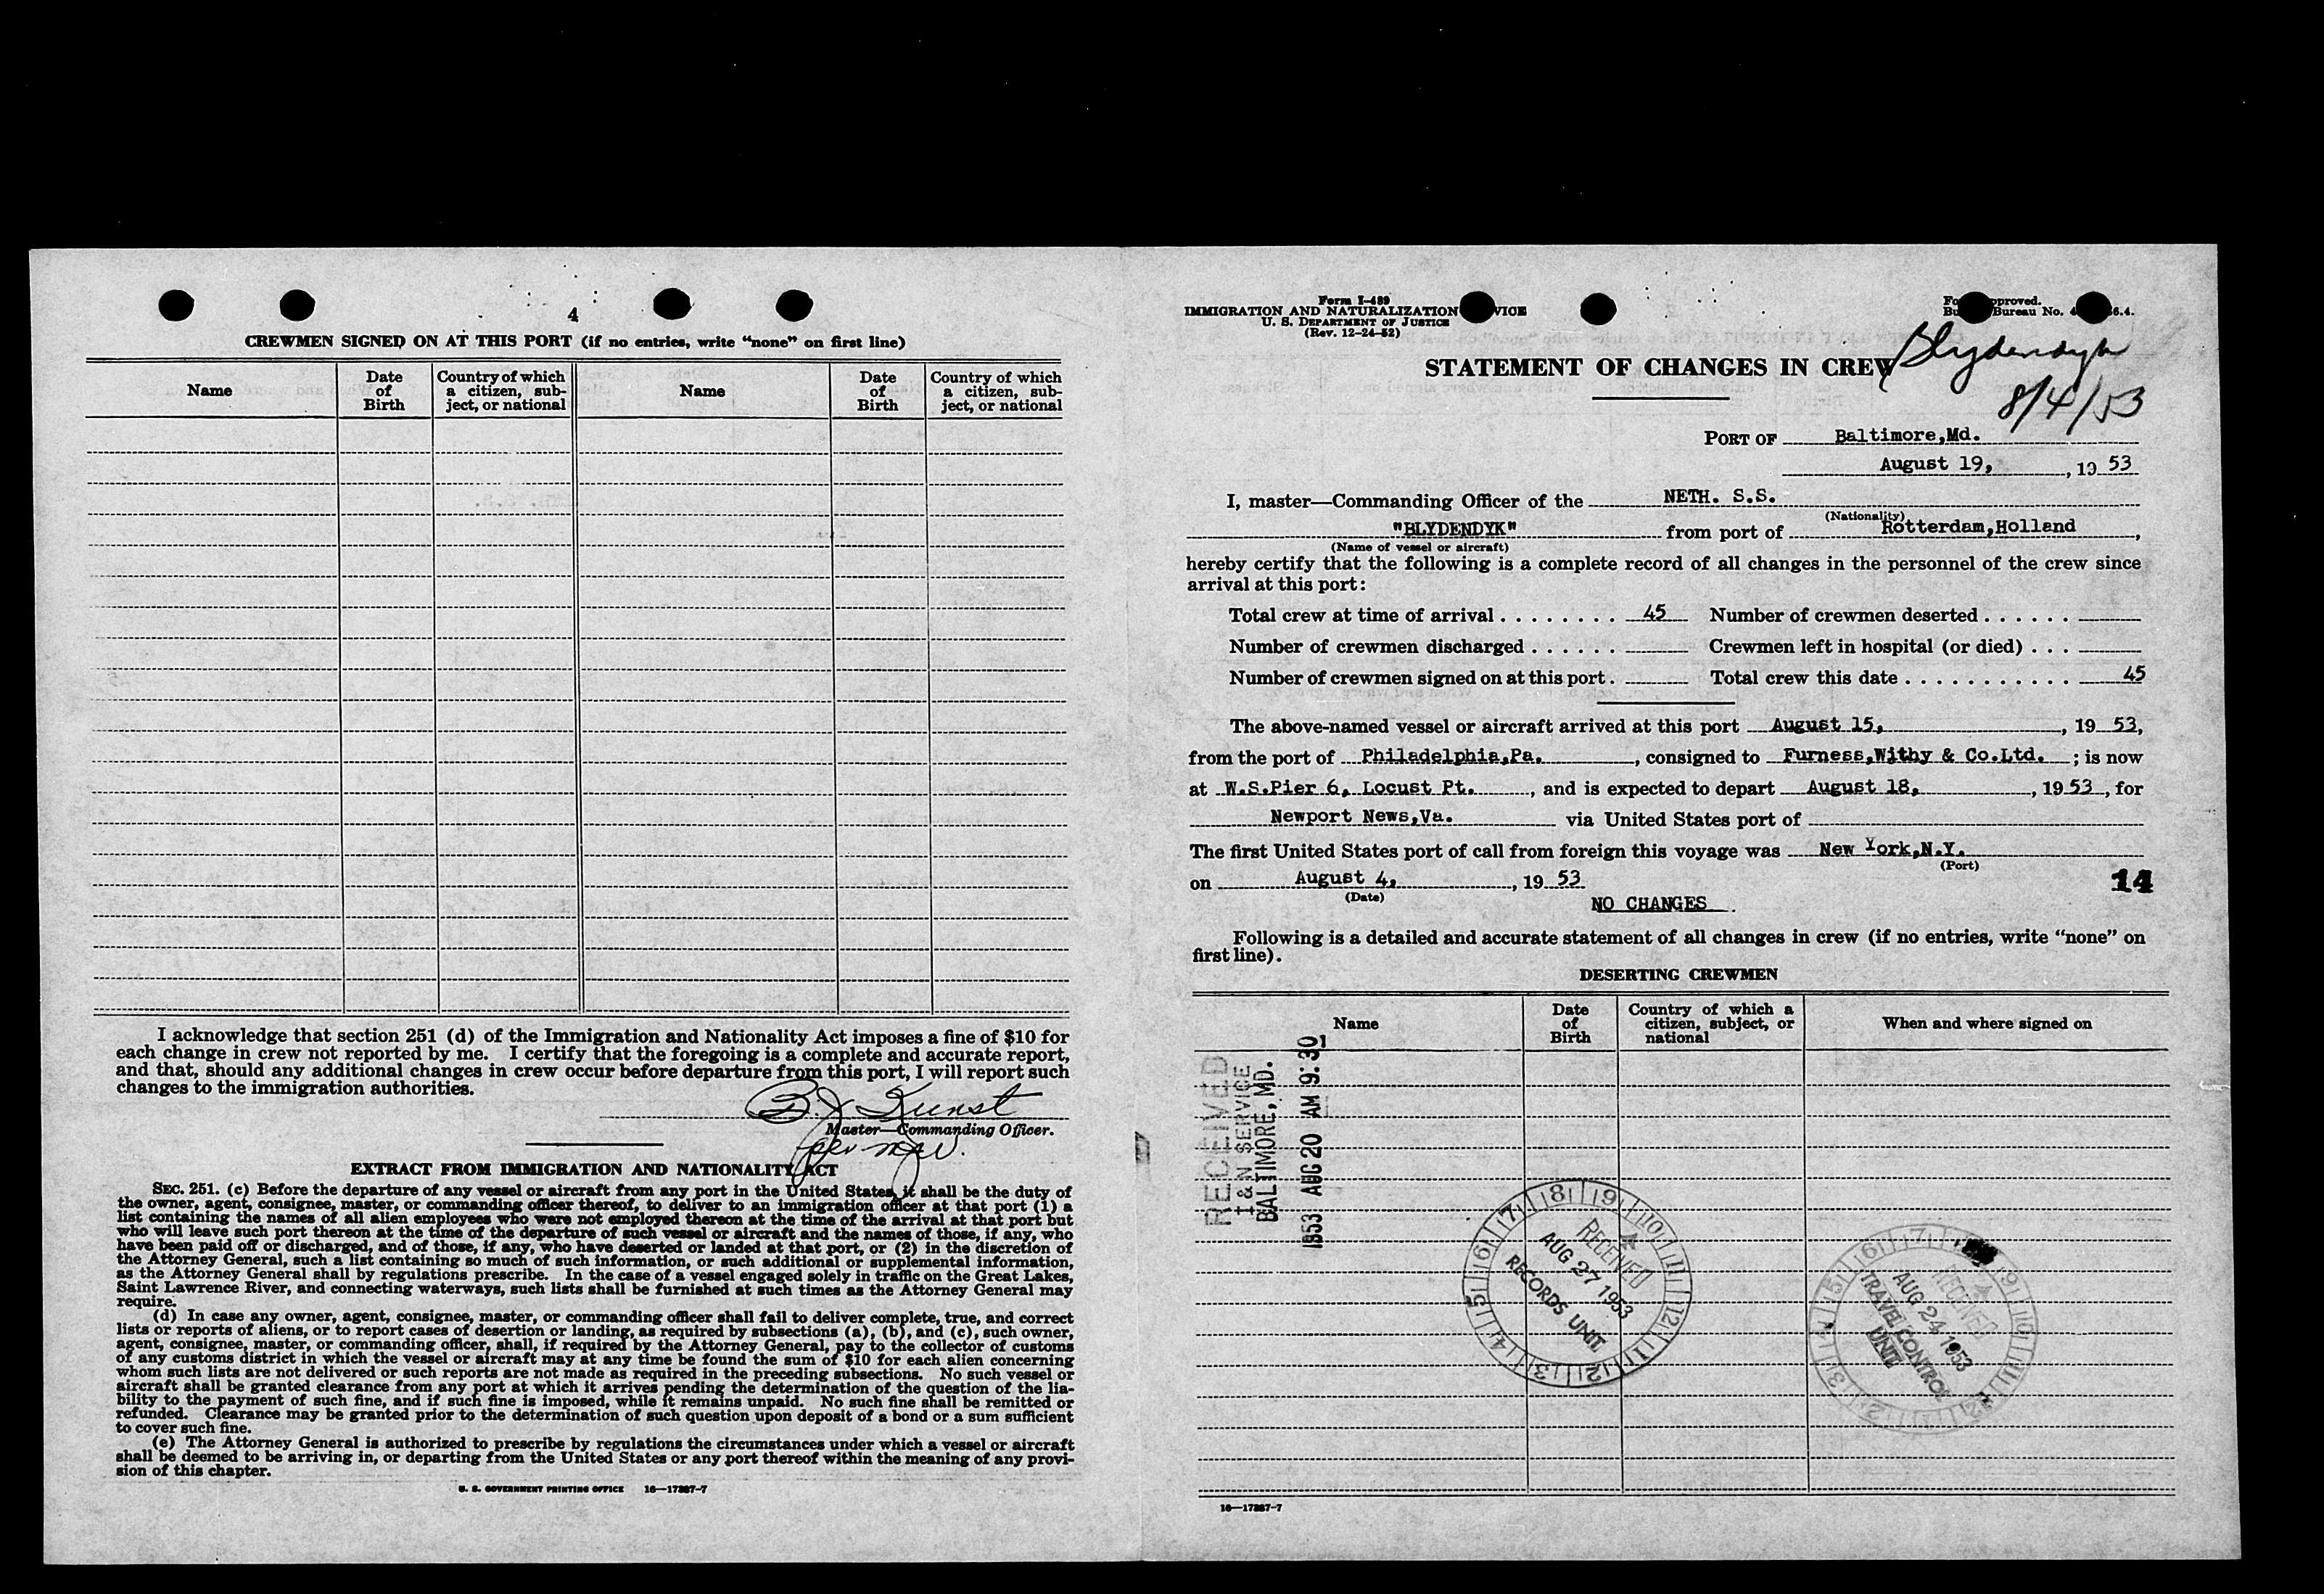 4
CREWMEN SIGNED ON AT THIS PORT (if no entries, write “none” on first line)
Name
Date of Birth
Country of which a citizen, sub-ject, or national
Name
Date of Birth
Country of which a citizen, sub-ject, or national
I acknowledge that section 251 (d) of the Immigration and Nationality Act imposes a fine of $10 for
each change in crew not reported by me. I certify that the foregoing is a complete and accurate report,
and that, should any additional changes in crew occur before departure from this port, I will report such
changes to the immigration authorities.
B. J. Kunst
Master—Commanding Officer.
per
EXTRACT FROM IMMIGRATION AND NATIONALITY ACT
SEC. 251. (c) Before the departure of any vessel or aircraft from any port in the United States, it shall be the duty of
the owner, agent, consignee, master, or commanding officer thereof, to deliver to an immigration officer at that port (1) a
list containing the names of all alien employees who were not employed thereon at the time of the arrival at that port but
who will leave such port thereon at the time of the departure of such vessel or aircraft and the names of those, if any, who
have been paid off or discharged, and of those, if any, who have deserted or landed at that port, or (2) in the discretion of
the Attorney General, such a list containing so much of such information, or such additional or supplemental information,
as the Attorney General shall by regulations prescribe. In the case of a vessel engaged solely in traffic on the Great Lakes,
Saint Lawrence River, and connecting waterways, such lists shall be furnished at such times as the Attorney General may
require.
(d) In case any owner, agent, consignee, master, or commanding officer shall fail to deliver complete, true, and correct
lists or reports of aliens, or to report cases of desertion or landing, as required by subsections (a), (b), and (c), such owner,
agent, consignee, master, or commanding officer, shall, if required by the Attorney General, pay to the collector of customs
of any customs district in which the vessel or aircraft may at any time be found the sum of $10 for each alien concerning
whom such lists are not delivered or such reports are not made as required in the preceding subsections. No such vessel or
aircraft shall be granted clearance from any port at which it arrives pending the determination of the question of the lia-
bility to the payment of such fine, and if such fine is imposed, while it remains unpaid. No such fine shall be remitted or
refunded. Clearance may be granted prior to the determination of such question upon deposit of a bond or a sum sufficient
to cover such fine.
(e) The Attorney General is authorized to prescribe by regulations the circumstances under which a vessel or aircraft
shall be deemed to be arriving in, or departing from the United States or any port thereof within the meaning of any provi-
sion of this chapter.
U. S. GOVERNMENT PRINTING OFFICE 16—17387-7
Form I-489
IMMIGRATION AND NATURALIZATION VICE
U. S. DEPARTMENT OF JUSTICE
(Rev. 12-24-52)
Fo pproved.
Bu Bureau No. 4 6.4.
STATEMENT OF CHANGES IN CREW
Blydendyk
8/4/53
PORT OF Baltimore,Md.
August 19, , 19 53
I, master—Commanding Officer of the NETH. S.S.
(Nationality)
"BLYDENDYK" from port of Rotterdam,Holland ,
(Name of vessel or aircraft)
hereby certify that the following is a complete record of all changes in the personnel of the crew since
arrival at this port:
Total crew at time of arrival . . . . . . . . 45 Number of crewmen deserted . . . . . .
Number of crewmen discharged . . . . . . Crewmen left in hospital (or died) . . .
Number of crewmen signed on at this port . Total crew this date . . . . . . . . . . . 45
The above-named vessel or aircraft arrived at this port August 15, , 19 53,
from the port of Philadelphia,Pa. , consigned to Furness,Withy & Co.Ltd. ; is now
at W.S.Pier 6, Locust Pt. , and is expected to depart August 18, , 19 53 , for
Newport News,Va. via United States port of
The first United States port of call from foreign this voyage was New York,N.Y.
(Port)
on August 4, , 19 53
(Date)
14
NO CHANGES
Following is a detailed and accurate statement of all changes in crew (if no entries, write “none” on
first line).
DESERTING CREWMEN
Name
Date of Birth
Country of which a citizen, subject, or national
When and where signed on
RECEIVED
I & N SERVICE
BALTIMORE, MD.
1953 AUG 20 AM 9:30
RECEIVED
AUG 27 1953
RECORDS UNIT
RECEIVED
AUG 24 1953
TRAVEL CONTROL
UNIT
16—17387-7